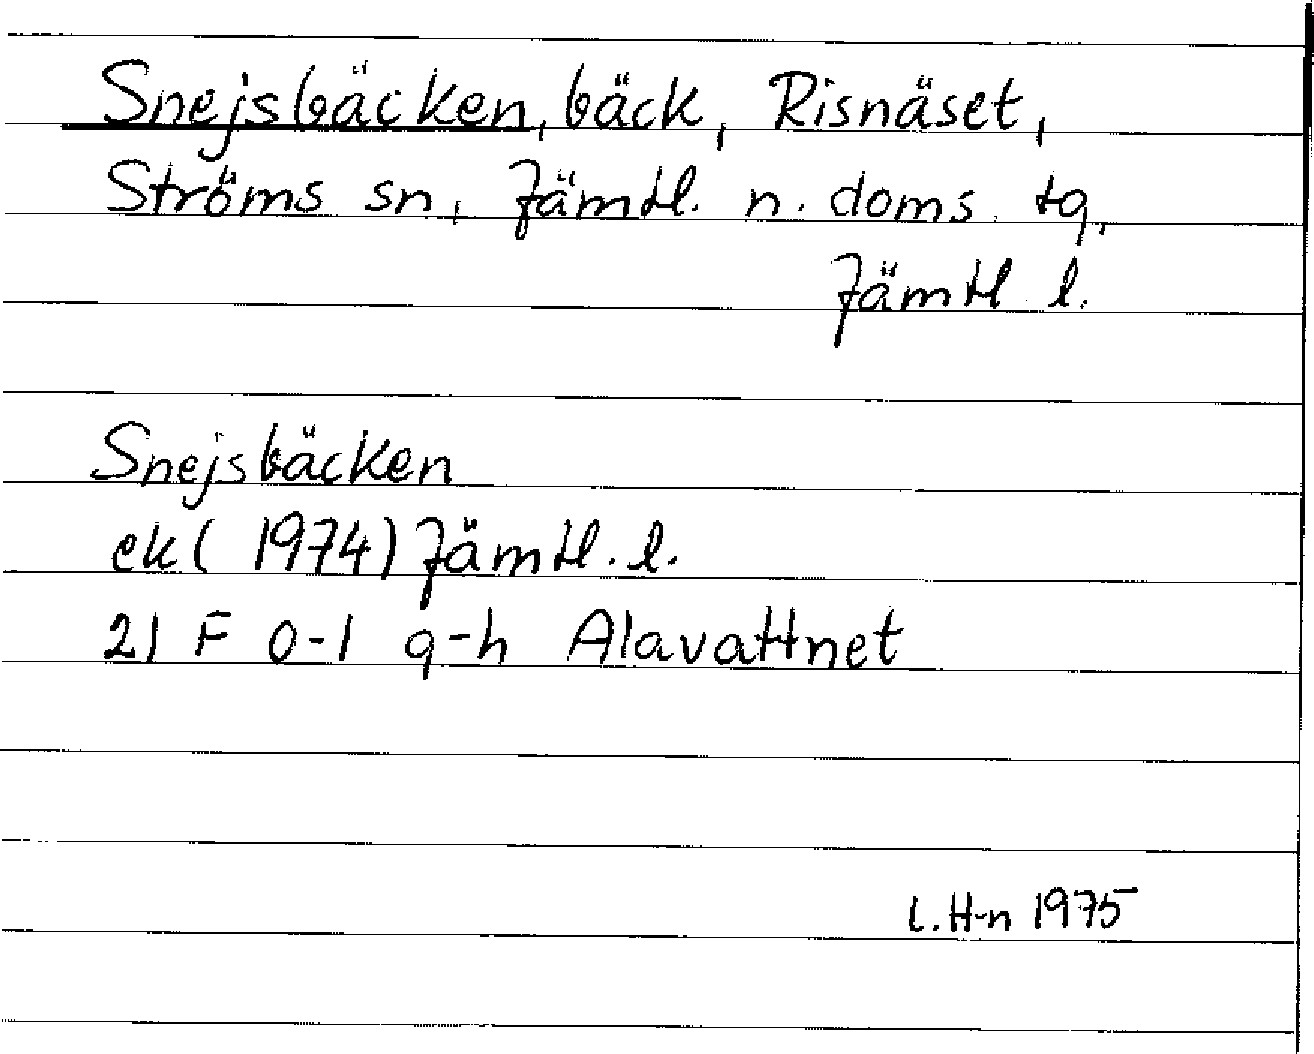 Snejsbäcken, bäck, Risnäset,
Ströms sn, Jämtl. n. doms. tg,
Jämtl l.
Snejsbäcken
ek (1974) Jämtl. l.
21 F 0-1 g-h Alavattnet
l. H-n 1975